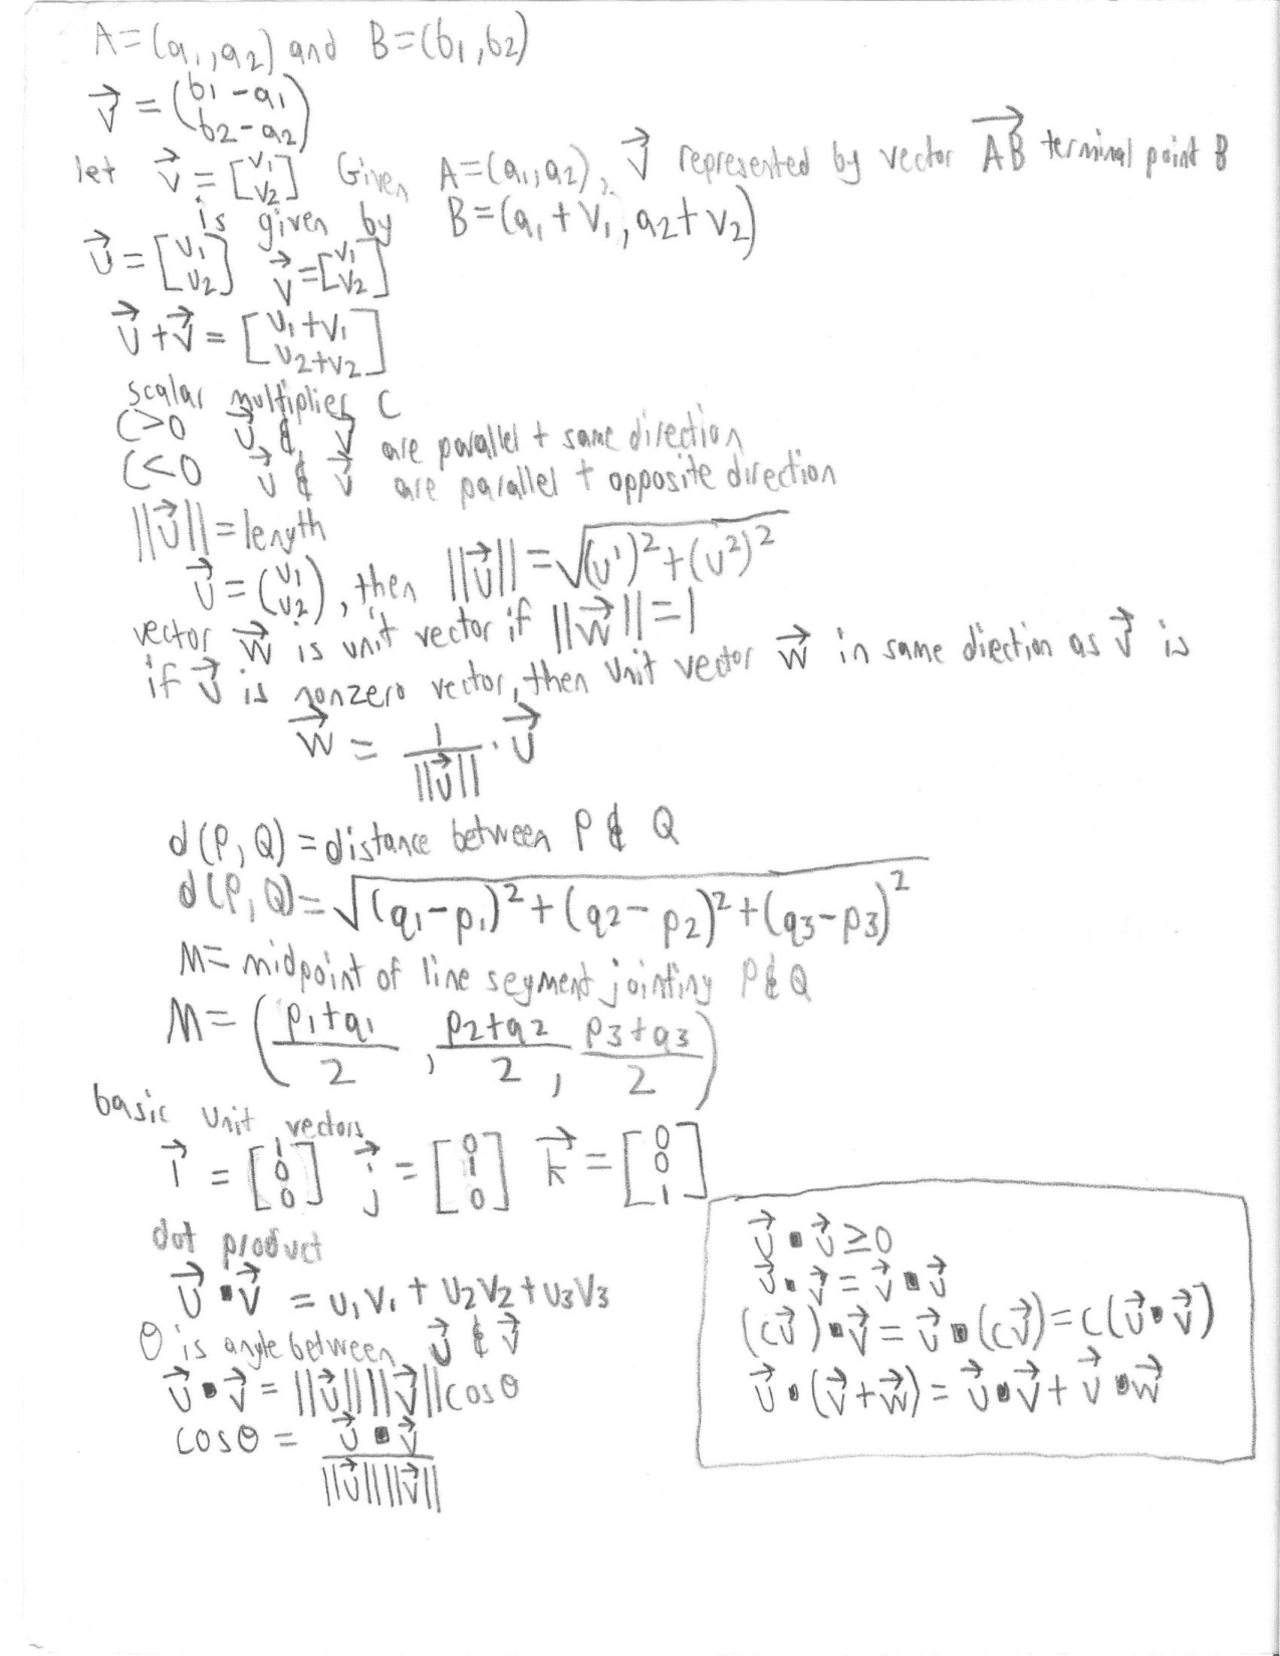 A=(a₁,a₂) and B=(b₁,b₂)
v⃗ = (b₁-a₁
b₂-a₂)
let v⃗ = [v₁ v₂] Given A=(a₁,a₂), v⃗ represented by vector AB⃗ terminal point B
is given by B=(a₁+v₁, a₂+v₂)
u⃗ = [u₁ u₂] v⃗ = [v₁ v₂]
u⃗+v⃗ = [u₁+v₁
u₂+v₂]
scalar multiplies C
C>0 u⃗ & v⃗ are parallel + same direction
C<0 u⃗ & v⃗ are parallel + opposite direction
||u⃗|| = length
u⃗ = (u₁ u₂), then ||u⃗|| = √(u¹)²+(u²)²
vector w⃗ is unit vector if ||w⃗|| = 1
if u⃗ is nonzero vector, then unit vector w⃗ in same direction as u⃗ is
w⃗ = 1/||u⃗|| · u⃗
d(P,Q) = distance between P & Q
d(P,Q) = √(q₁-p₁)²+(q₂-p₂)²+(q₃-p₃)²
M= midpoint of line segment jointing P & Q
M= (p₁+q₁/2, p₂+q₂/2, p₃+q₃/2)
basic unit vectors
i⃗ = [1 0 0] j⃗ = [0 1 0] k⃗ = [0 0 1]
dot product
u⃗ · v⃗ = u₁v₁ + u₂v₂ + u₃v₃
θ is angle between u⃗ & v⃗
u⃗ · v⃗ = ||u⃗|| ||v⃗|| cosθ
cosθ = u⃗ · v⃗ / ||u⃗|| ||v⃗||
u⃗ · u⃗ ≥ 0
u⃗ · v⃗ = v⃗ · u⃗
(cu⃗) · v⃗ = u⃗ · (cv⃗) = c(u⃗ · v⃗)
u⃗ · (v⃗+w⃗) = u⃗ · v⃗ + v⃗ · w⃗